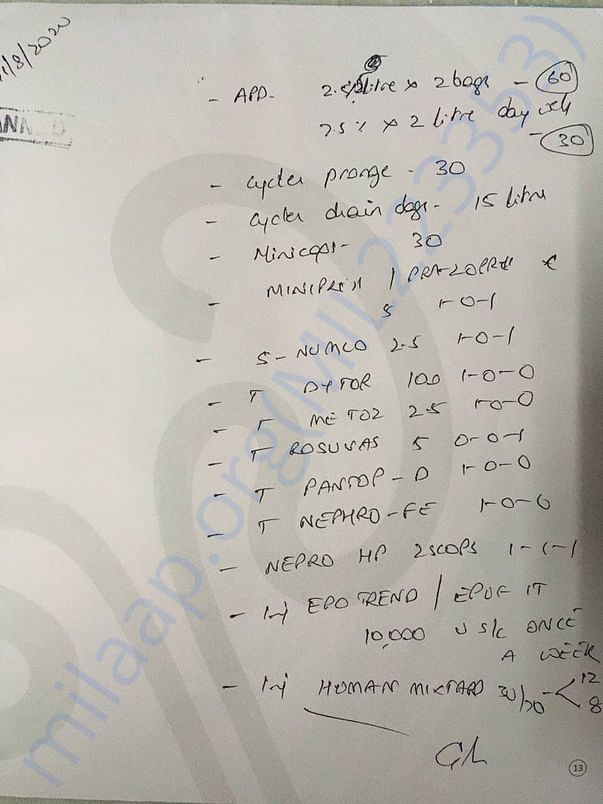 1/8/2020
- APD. 2.5% litre x 2 bags - 60
7.5% x 2 litre day
- 30
- Cycler pronge - 30
- Cycler drain bags - 15 litre
- Minicaps - 30
- MINIPRESS / PRAZOPRESS
5 1-0-1
- S-NUMLO 2.5 1-0-1
- T DYTOR 100 1-0-0
- T METOZ 2.5 1-0-0
- T ROSUVAS 5 0-0-1
- T PANTOP-D 1-0-0
- T NEPHRO-FE 1-0-0
- NEPRO HP 2 SCOPS 1-1-1
- Inj EPOTREND / EPOFIT
10,000 U S/C ONCE
A WEEK
- Inj HUMAN MIXTARD 30/70 - < 12
8
13
milaap.org(MIL223353)